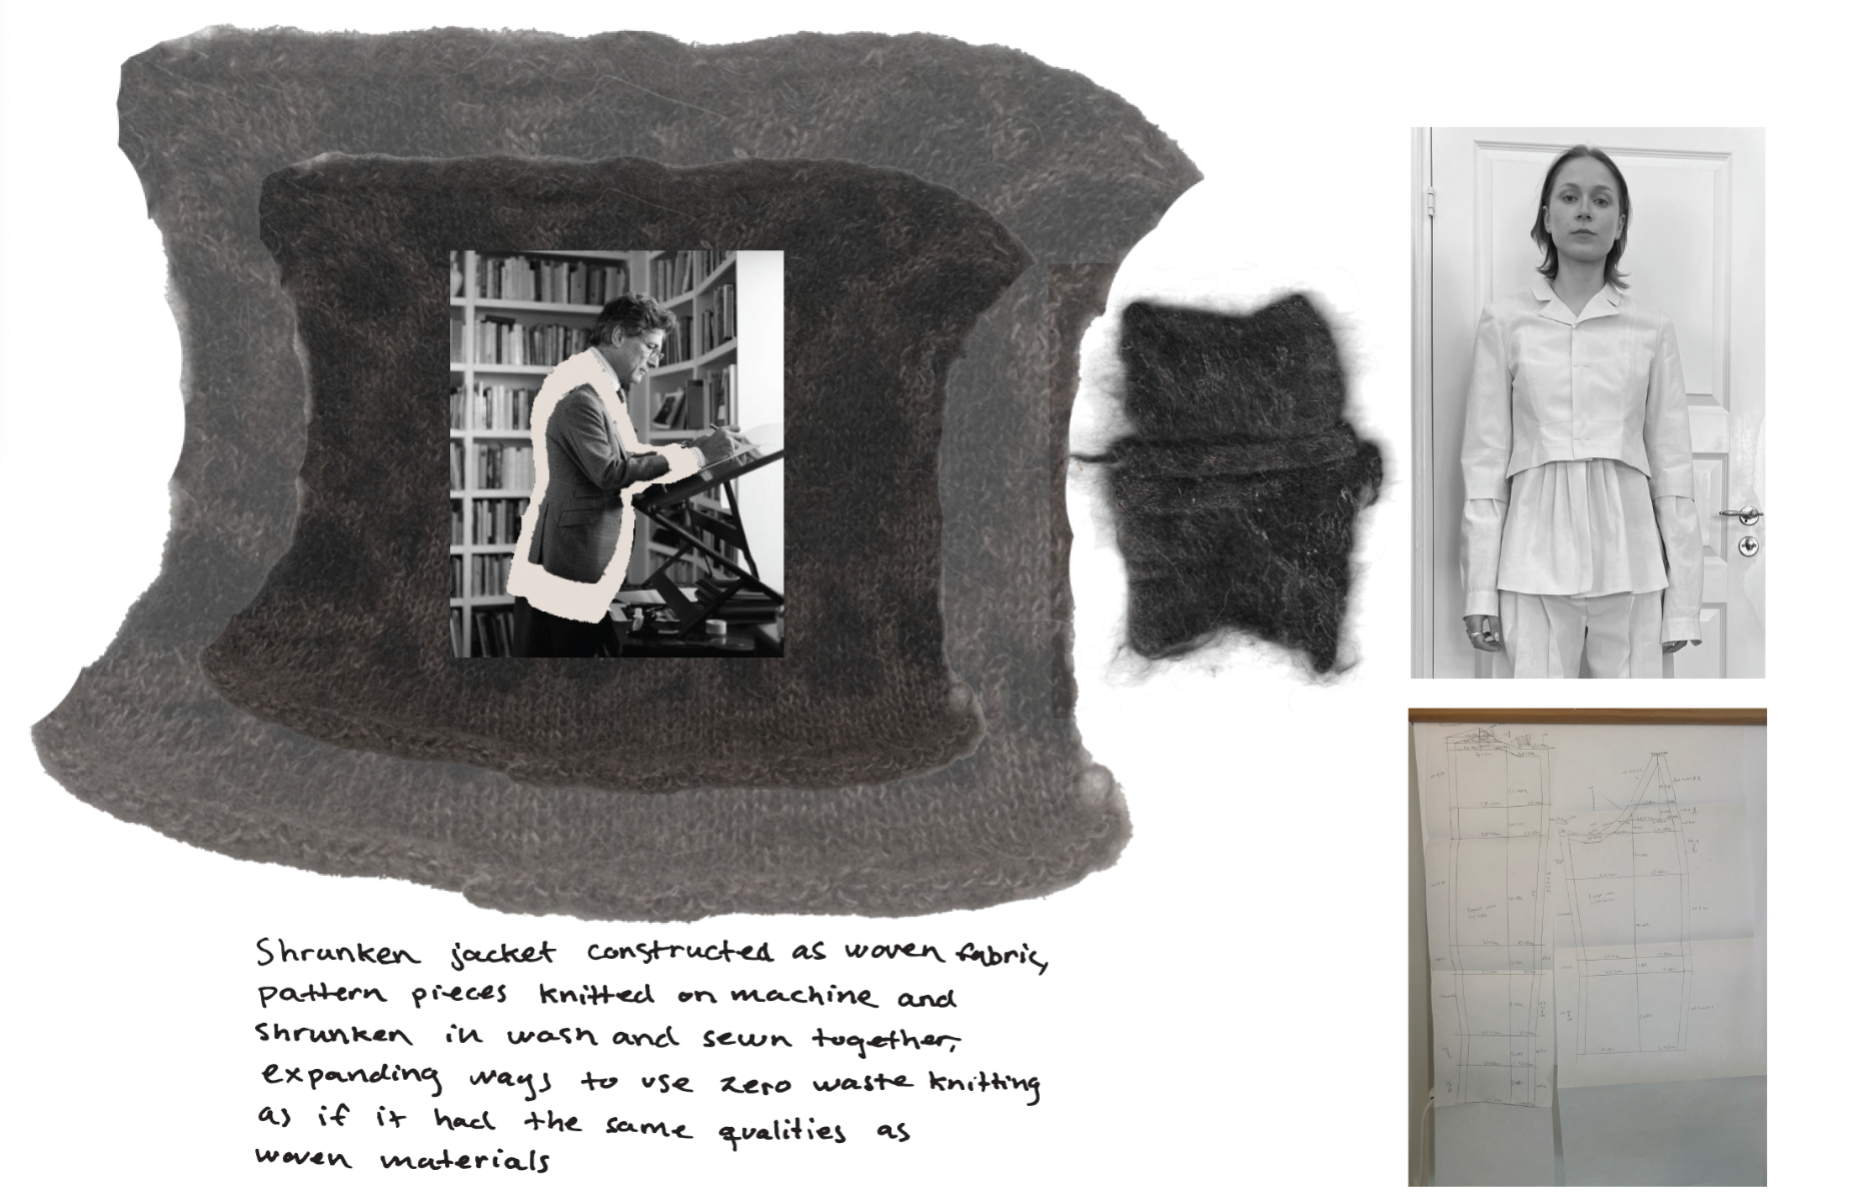 Shrunken jacket constructed as woven fabric,
pattern pieces knitted on machine and
shrunken in wash and sewn together,
expanding ways to use zero waste knitting
as if it had the same qualities as
woven materials